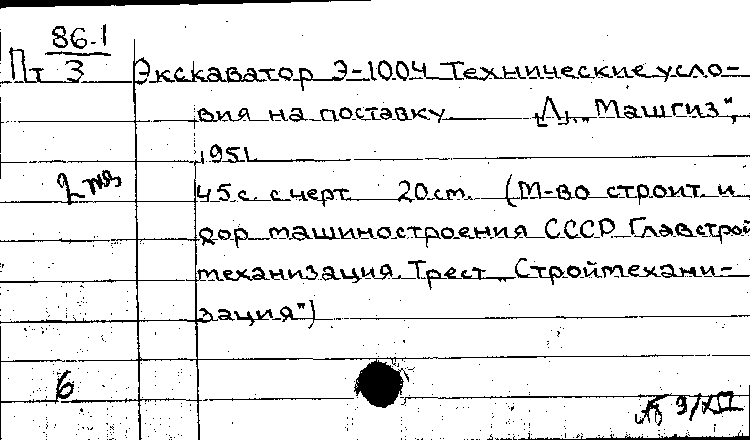 Пт 86-1/3 Экскаватор Э-1004 Технические усло-
вия на поставку [Л], „Машгиз",
1951.
2 экз
45с. с черт. 20см. (М-во строит. и
дор машиностроения СССР Главстрой
механизация. Трест „Строймехани-
зация")
6
9/XII